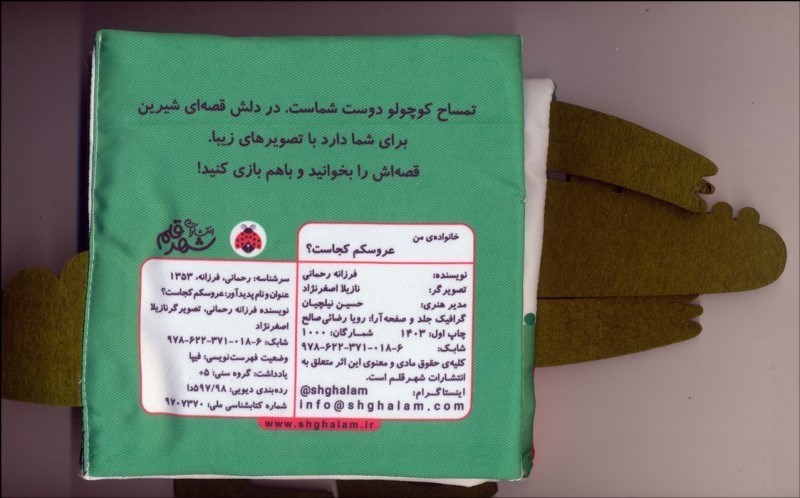 تمساح کوچولو دوست شماست. در دلش قصه‌ای شیرین
برای شما دارد با تصویرهای زیبا.
قصه‌اش را بخوانید و باهم بازی کنید!
انتشارات
شهر قلم
خانواده‌ی من
عروسکم کجاست؟
نویسنده: فرزانه رحمانی
تصویرگر: نازیلا اصغرنژاد
مدیر هنری: حسین نیلچیان
گرافیک جلد و صفحه‌آرا: رویا رضائی صالح
چاپ اول: ۱۴۰۳ شمارگان: ۱۰۰۰
شابک: ۹۷۸-۶۲۲-۳۷۱-۰۱۸-۶
کلیه‌ی حقوق مادی و معنوی این اثر متعلق به
انتشارات شهر قلم است.
اینستاگرام: @shghalam
info@shghalam.com
سرشناسه: رحمانی، فرزانه، ۱۳۵۳
عنوان و نام پدیدآور: عروسکم کجاست؟
نویسنده فرزانه رحمانی، تصویرگر نازیلا
اصغرنژاد
شابک: ۹۷۸-۶۲۲-۳۷۱-۰۱۸-۶
وضعیت فهرست‌نویسی: فیپا
یادداشت: گروه سنی: ۵+
رده‌بندی دیویی: ۵۹۷/۹۸دا
شماره کتابشناسی ملی: ۹۷۰۷۳۷۰
www.shghalam.ir